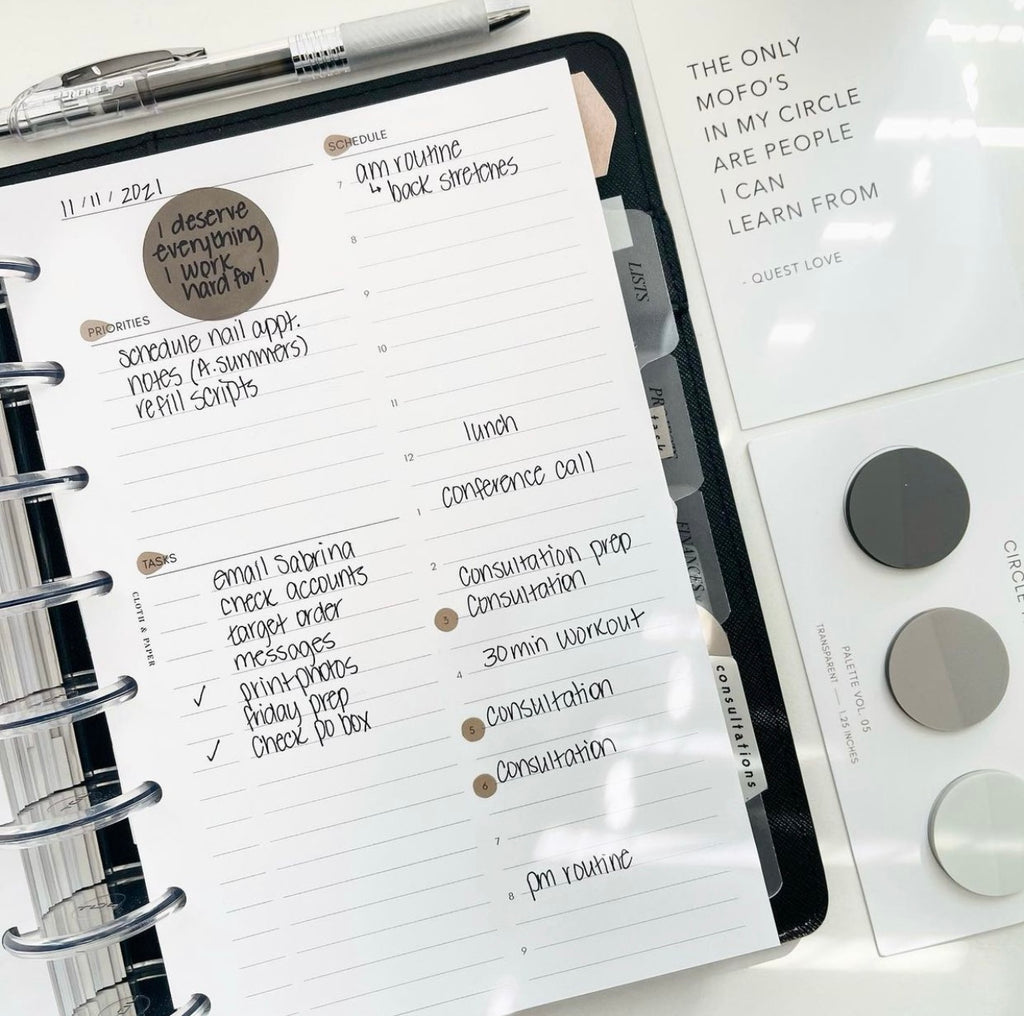 11/11/2021
I deserve
everything
I work
hard for!
PRIORITIES
schedule nail appt.
notes (A.summers)
refill scripts
TASKS
email Sabrina
check accounts
target order
messages
✓ print photos
friday prep
✓ check po box
CLOTH & PAPER
SCHEDULE
7 am routine
↳ back stretches
8
9
10
11
lunch
12
conference call
1
2 consultation prep
3 consultation
30 min workout
4
5 consultation
6 consultation
7
8 pm routine
9
LISTS
FINANCES
consultations
THE ONLY
MOFO'S
IN MY CIRCLE
ARE PEOPLE
I CAN
LEARN FROM
- QUEST LOVE
CIRCLE
PALETTE VOL. 05
TRANSPARENT — 1.25 INCHES